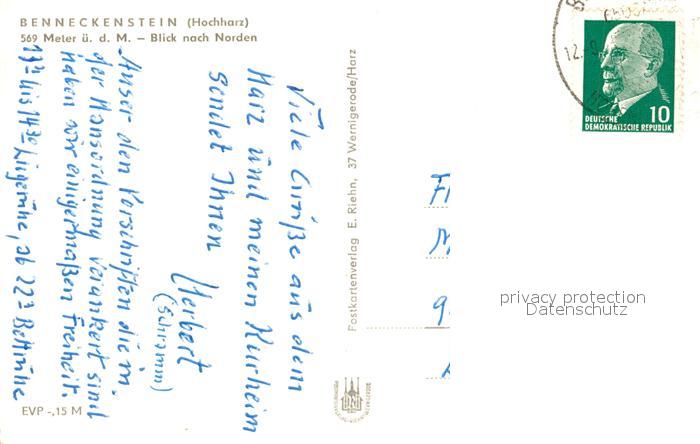 BENNECKENSTEIN (Hochharz)
569 Meter ü. d. M. — Blick nach Norden
Viele Grüße aus dem
Harz und meinen Kurheim
sendet Ihnen
Herbert
(Schramm)
Auser den Vorschriften die in
der Hausordnung verankert sind
haben wir einigermaßen Freiheit.
13³⁰ bis 14³⁰ Liegeruhe, ab 22³⁰ Bettruhe
EVP -,15 M
Postkartenverlag E. Riehn, 37 Wernigerode/Harz
12.-9.
10
DEUTSCHE
DEMOKRATISCHE REPUBLIK
privacy protection
Datenschutz